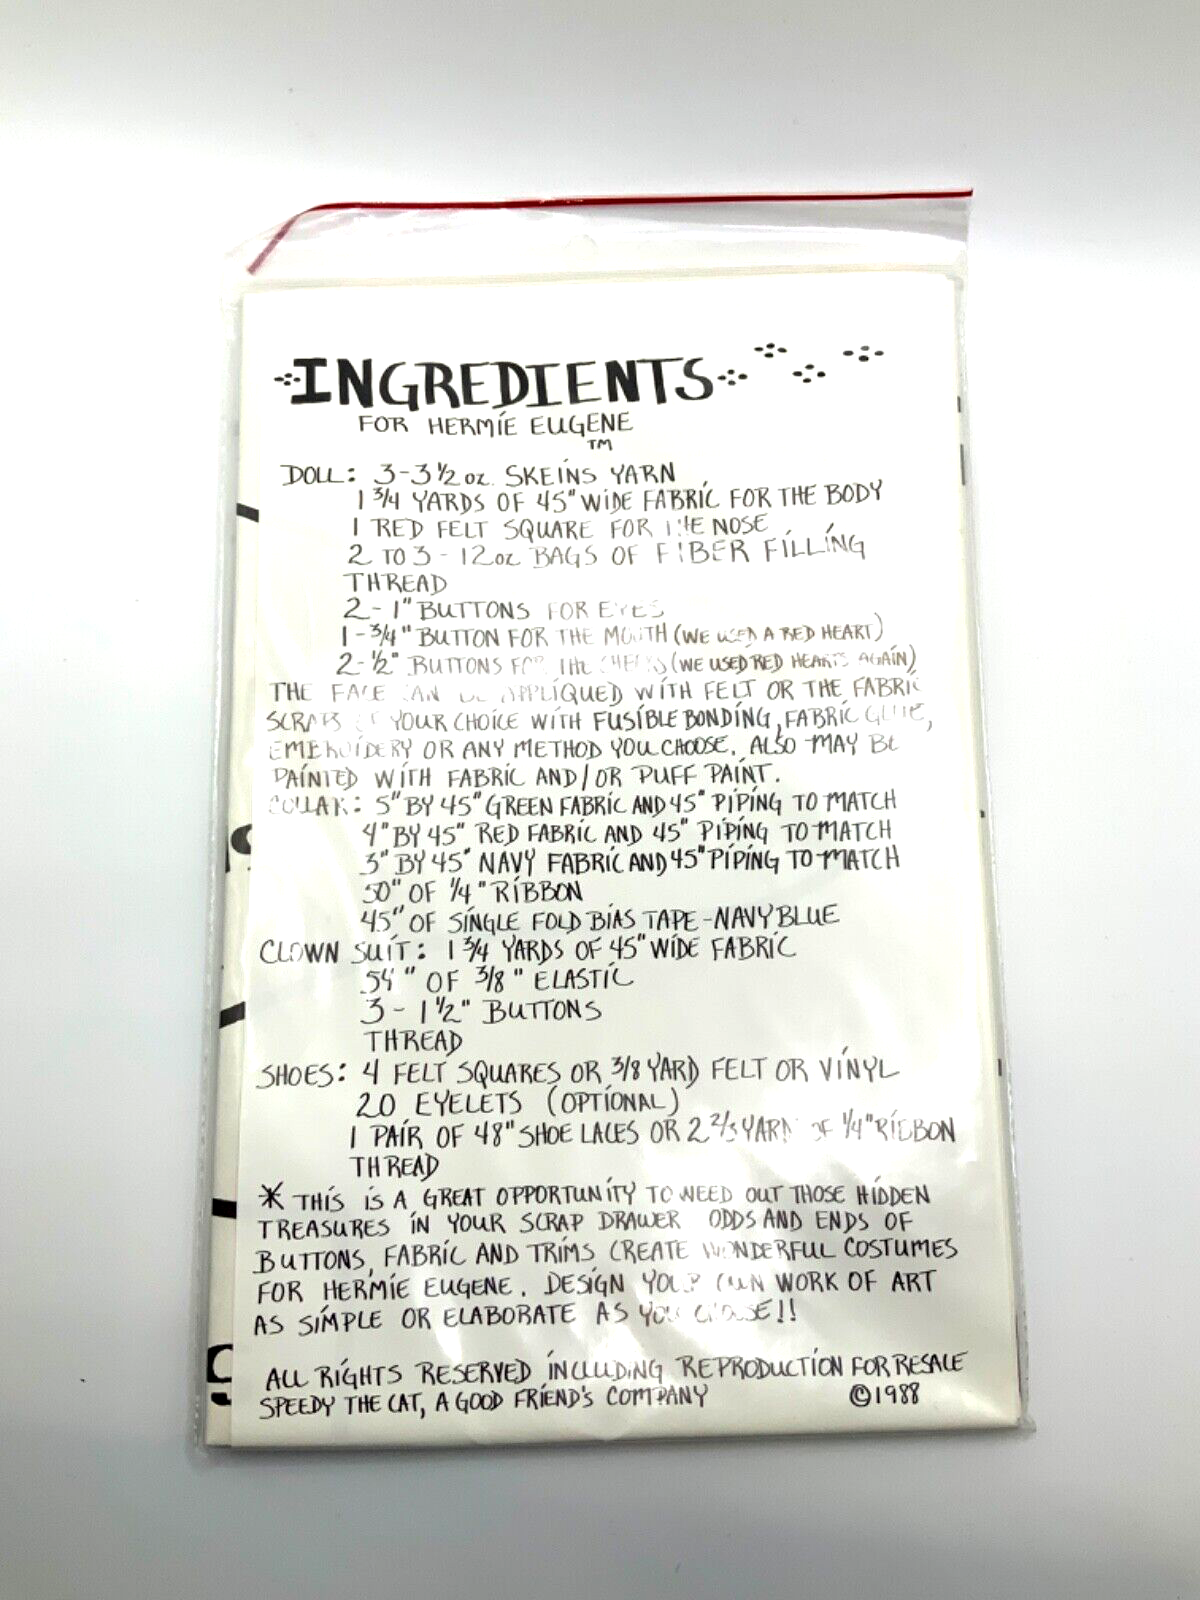 INGREDIENTS
FOR HERMIE EUGENE
TM
DOLL: 3-3 1/2 oz. SKEINS YARN
1 3/4 YARDS OF 45" WIDE FABRIC FOR THE BODY
1 RED FELT SQUARE FOR THE NOSE
2 TO 3 - 12 oz BAGS OF FIBER FILLING
THREAD
2 - 1" BUTTONS FOR EYES
1 - 3/4" BUTTON FOR THE MOUTH (WE USED A RED HEART)
2 - 1/2" BUTTONS FOR THE CHEEKS (WE USED RED HEARTS AGAIN)
THE FACE CAN BE APPLIQUED WITH FELT OR THE FABRIC
SCRAPS OF YOUR CHOICE WITH FUSIBLE BONDING, FABRIC GLUE,
EMBROIDERY OR ANY METHOD YOU CHOOSE. ALSO MAY BE
PAINTED WITH FABRIC AND/OR PUFF PAINT.
COLLAR: 5" BY 45" GREEN FABRIC AND 45" PIPING TO MATCH
4" BY 45" RED FABRIC AND 45" PIPING TO MATCH
3" BY 45" NAVY FABRIC AND 45" PIPING TO MATCH
50" OF 1/4" RIBBON
45" OF SINGLE FOLD BIAS TAPE - NAVY BLUE
CLOWN SUIT: 1 3/4 YARDS OF 45" WIDE FABRIC
54" OF 3/8" ELASTIC
3 - 1 1/2" BUTTONS
THREAD
SHOES: 4 FELT SQUARES OR 3/8 YARD FELT OR VINYL
20 EYELETS (OPTIONAL)
1 PAIR OF 48" SHOE LACES OR 2 2/3 YARDS OF 1/4" RIBBON
THREAD
* THIS IS A GREAT OPPORTUNITY TO WEED OUT THOSE HIDDEN
TREASURES IN YOUR SCRAP DRAWER ODDS AND ENDS OF
BUTTONS, FABRIC AND TRIMS CREATE WONDERFUL COSTUMES
FOR HERMIE EUGENE. DESIGN YOUR OWN WORK OF ART
AS SIMPLE OR ELABORATE AS YOU CHOOSE!!
ALL RIGHTS RESERVED INCLUDING REPRODUCTION FOR RESALE
SPEEDY THE CAT, A GOOD FRIEND'S COMPANY ©1988